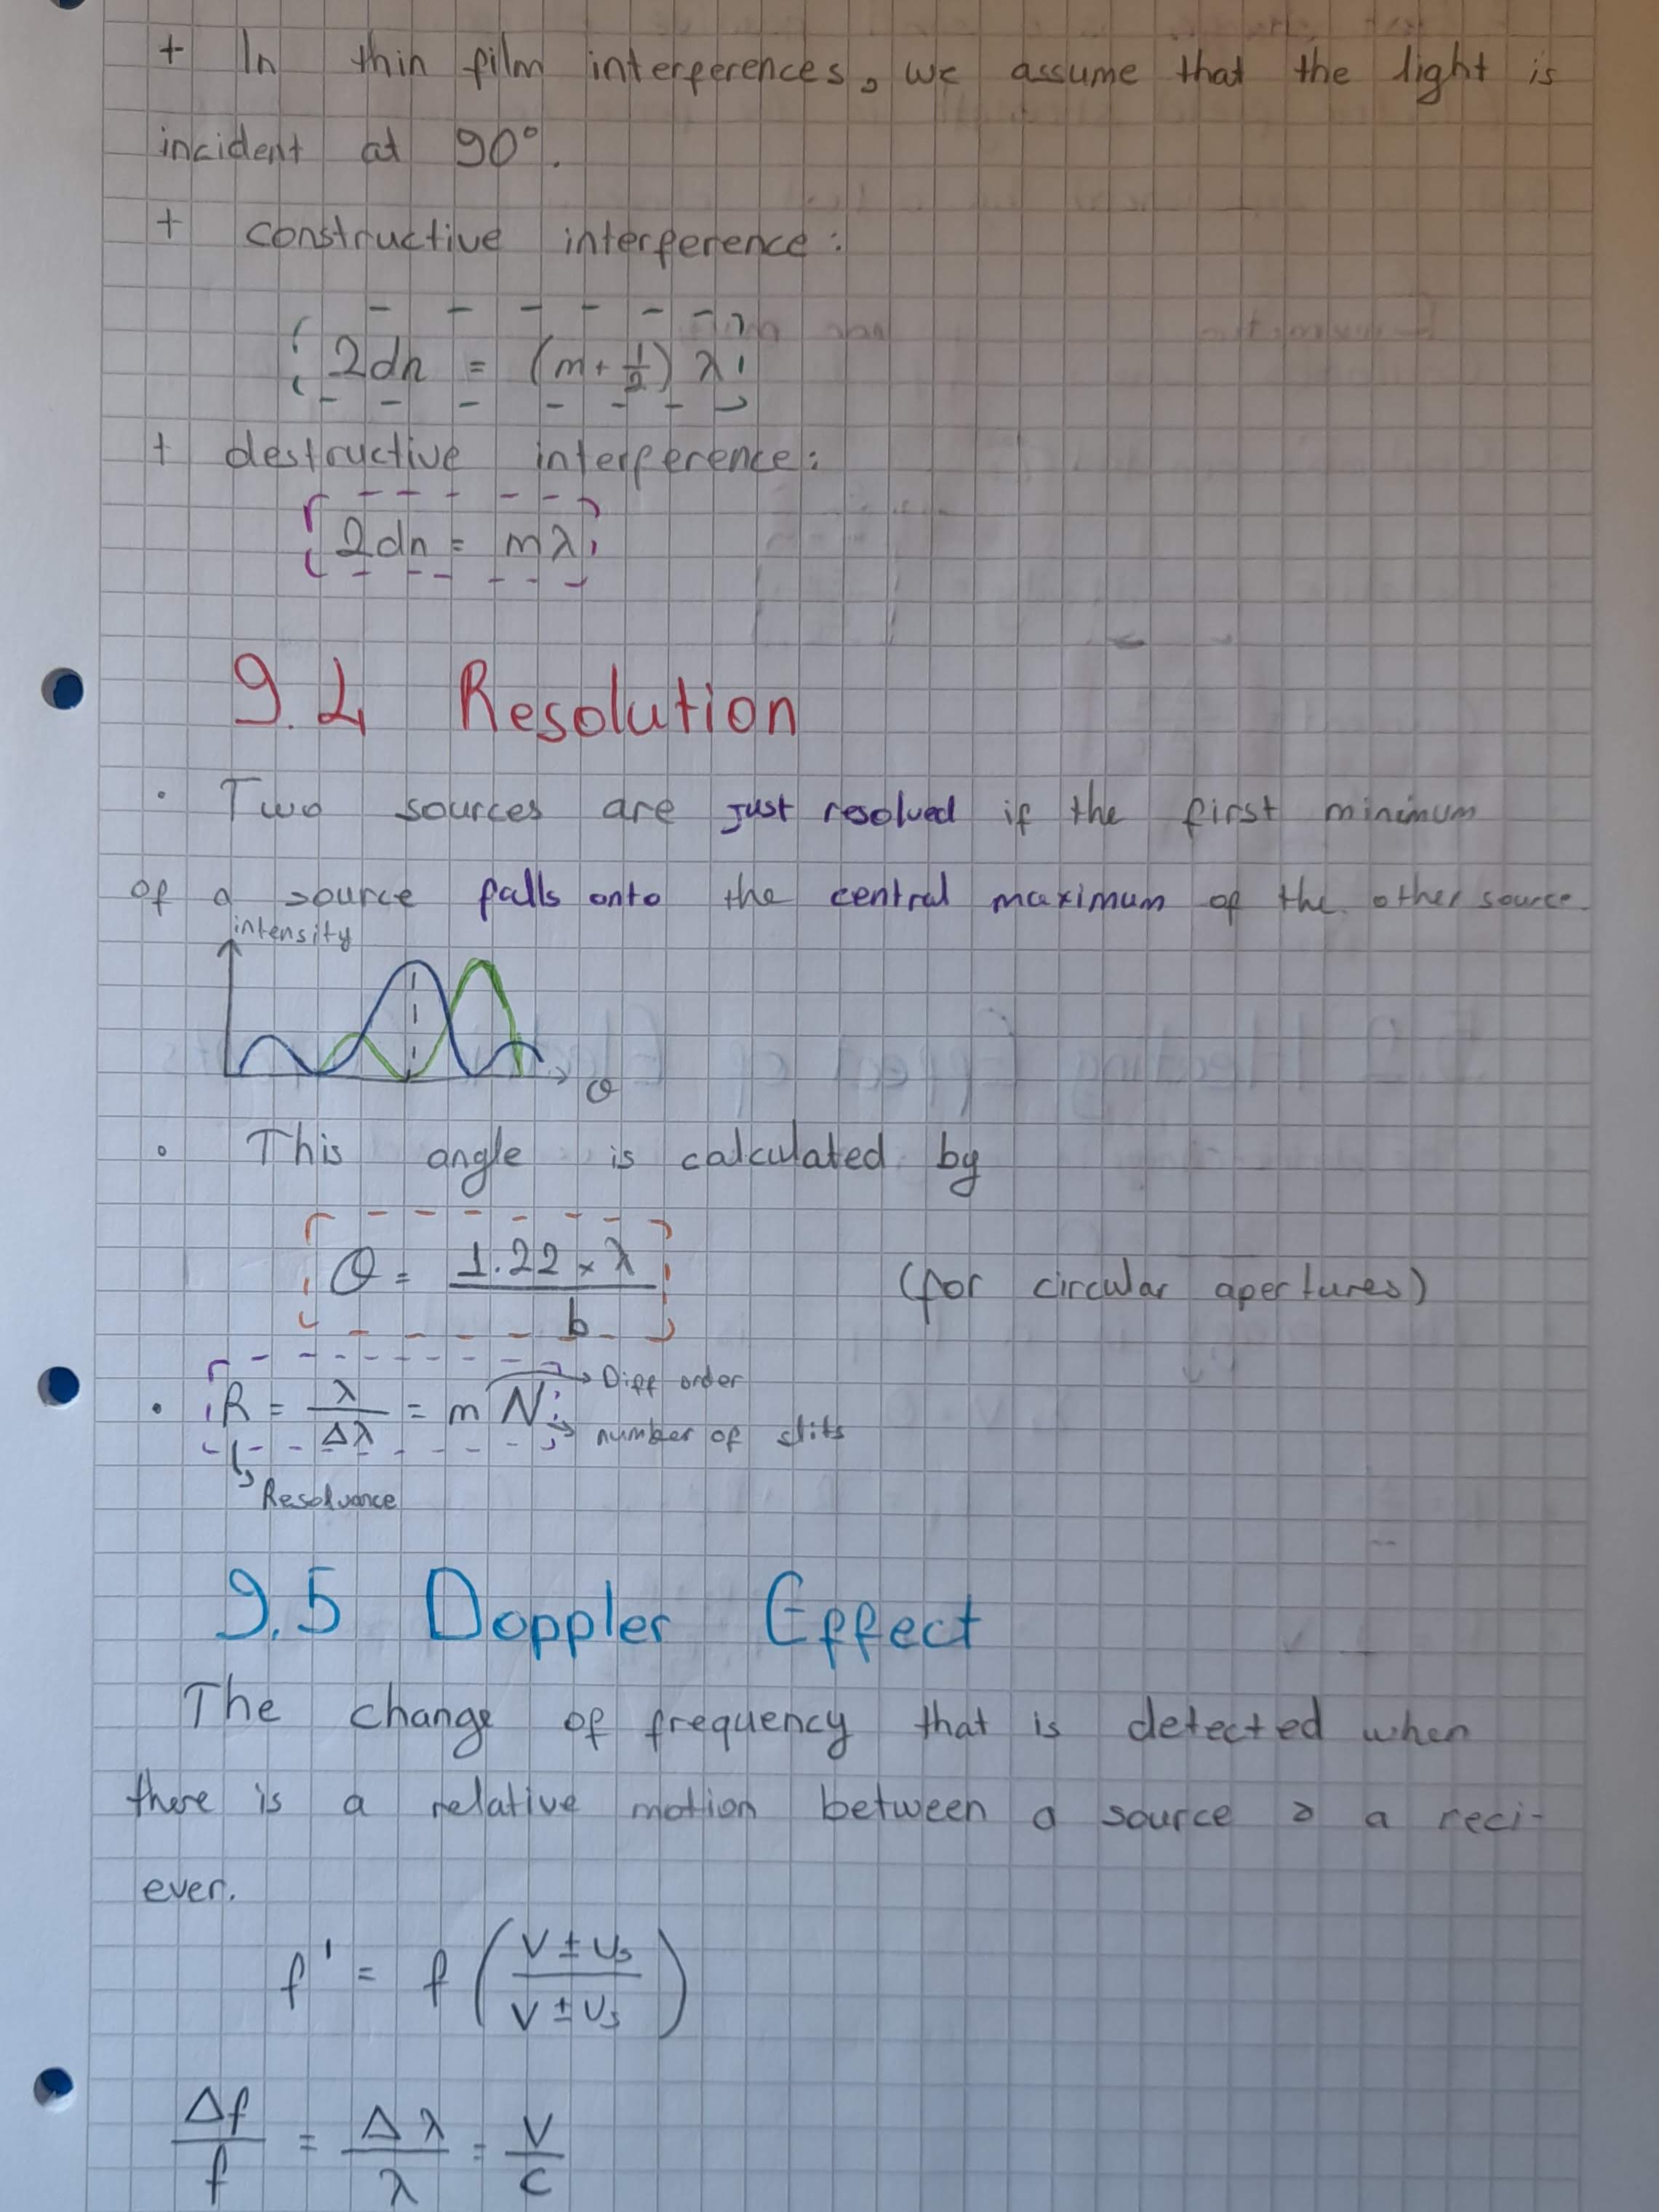 + In thin film interferences, we assume that the light is
incident at 90°.
+ constructive interference:
2dn = (m + 1/2) λ
+ destructive interference:
2dn = mλ
9.4 Resolution
· Two sources are just resolved if the first minimum
of a source falls onto the central maximum of the other source.
intensity
θ
· This angle is calculated by
θ = 1.22 × λ / b (for circular apertures)
· R = λ/Δλ = m N → Diff order
→ number of slits
↳ Resolvance
9.5 Doppler Effect
The change of frequency that is detected when
there is a relative motion between a source & a reci-
ever.
f' = f (v ± us / v ± us)
Δf/f = Δλ/λ = v/c